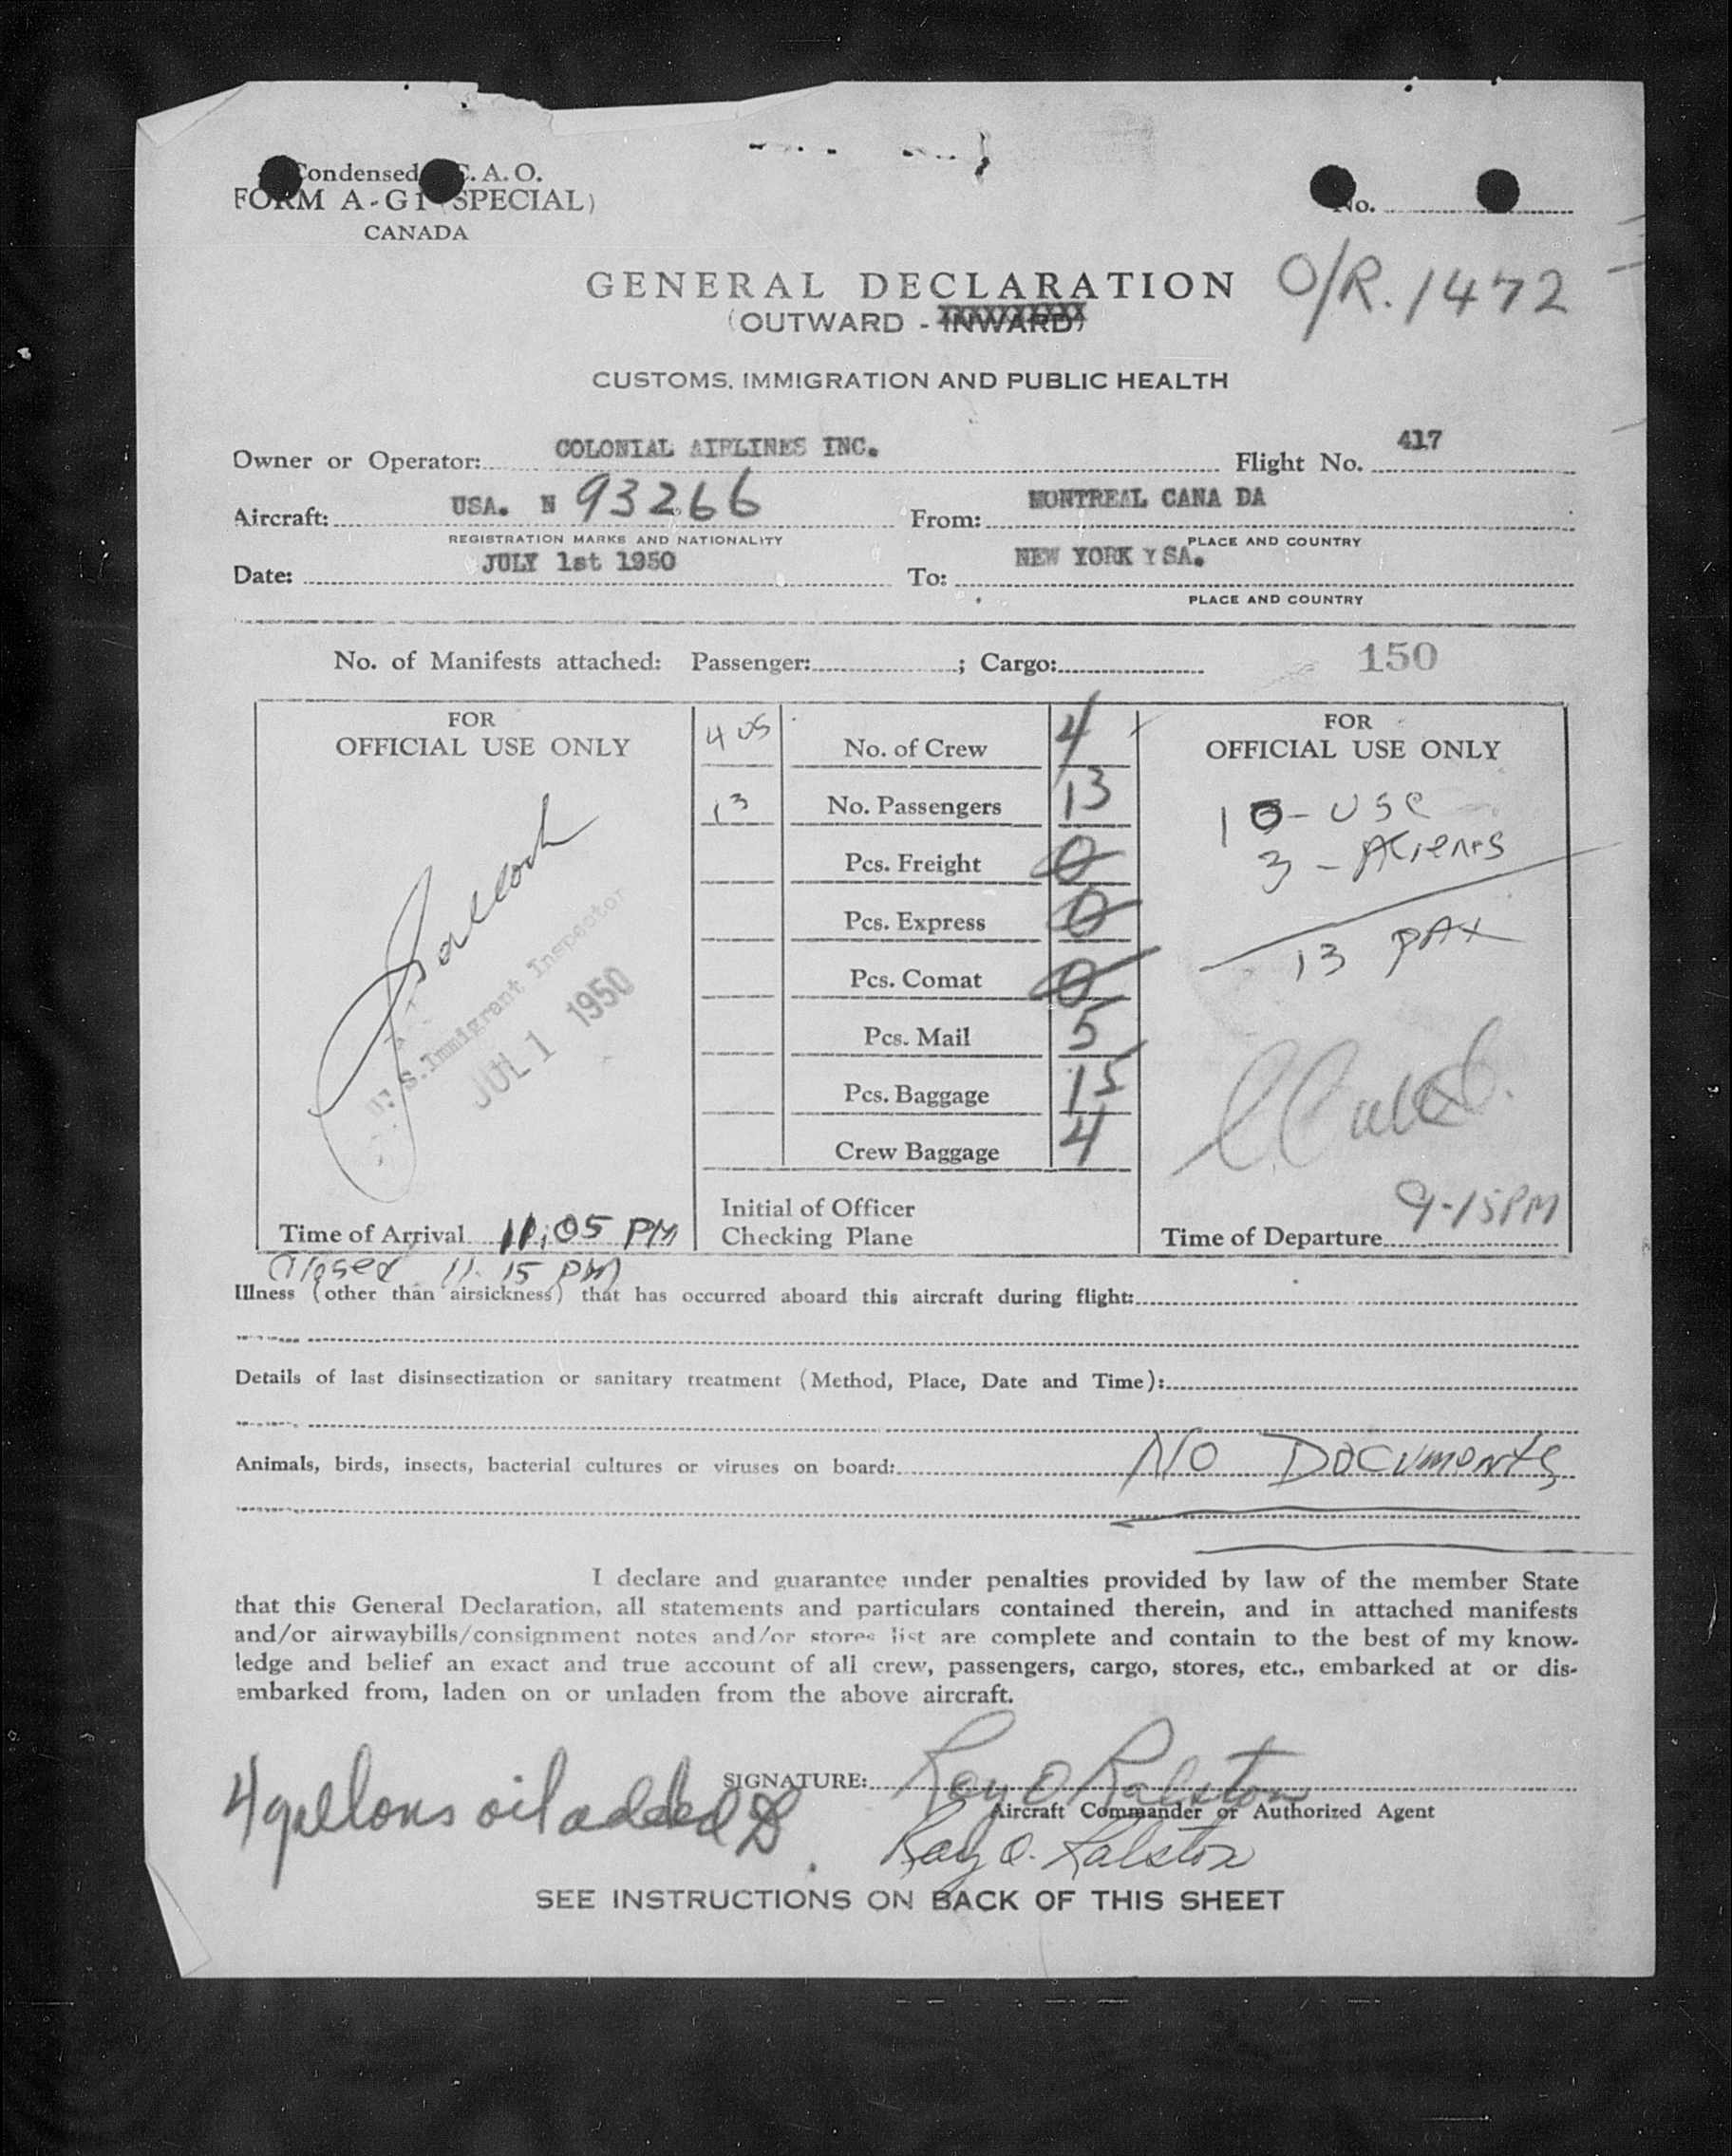 Condensed C. A. O.
FORM A-G1 (SPECIAL)
CANADA
No.
O/R. 1472
GENERAL DECLARATION
(OUTWARD - INWARD)
CUSTOMS, IMMIGRATION AND PUBLIC HEALTH
Owner or Operator: COLONIAL AIRLINES INC. Flight No. 417
Aircraft: USA. N 93266 From: MONTREAL CANA DA
REGISTRATION MARKS AND NATIONALITY PLACE AND COUNTRY
Date: JULY 1st 1950 To: NEW YORK Y SA.
PLACE AND COUNTRY
No. of Manifests attached: Passenger: ; Cargo: 150
FOR OFFICIAL USE ONLY
4 US No. of Crew 4
13 No. Passengers 13
Pcs. Freight 0
Pcs. Express 0
Pcs. Comat 0
Pcs. Mail 5
Pcs. Baggage 15
Crew Baggage 4
Initial of Officer
Checking Plane
U.S. Immigrant Inspector
JUL 1 1950
Time of Arrival 11:05 PM
Closed 11.15 PM
FOR OFFICIAL USE ONLY
10 - USC
3 - Aliens
13 PAX
9-15PM
Time of Departure
Illness (other than airsickness) that has occurred aboard this aircraft during flight:
Details of last disinsectization or sanitary treatment (Method, Place, Date and Time):
Animals, birds, insects, bacterial cultures or viruses on board: No Documents
I declare and guarantee under penalties provided by law of the member State
that this General Declaration, all statements and particulars contained therein, and in attached manifests
and/or airwaybills/consignment notes and/or stores list are complete and contain to the best of my know-
ledge and belief an exact and true account of all crew, passengers, cargo, stores, etc., embarked at or dis-
embarked from, laden on or unladen from the above aircraft.
SIGNATURE: Roy O Ralston
Aircraft Commander or Authorized Agent
4 gallons oil added
Ray O. Ralston
SEE INSTRUCTIONS ON BACK OF THIS SHEET